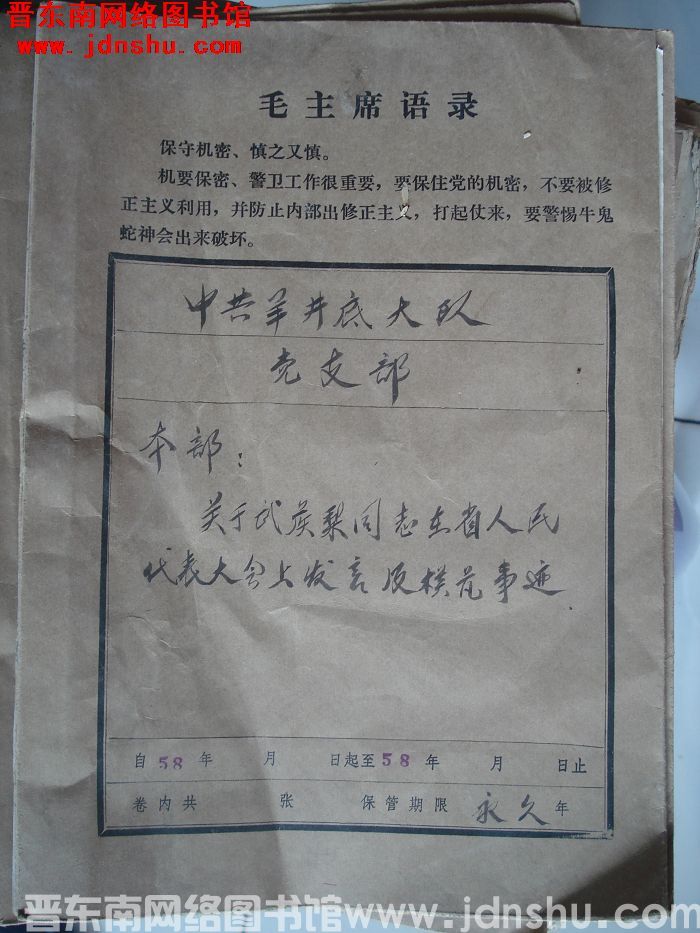 晋东南网络图书馆
www.jdnshu.com
毛主席语录
保守机密、慎之又慎。
机要保密、警卫工作很重要，要保住党的机密，不要被修
正主义利用，并防止内部出修正主义，打起仗来，要警惕牛鬼
蛇神会出来破坏。
中共羊井底大队
党支部
本部：
关于武侯梨同志在省人民
代表大会上发言及模范事迹
自58年 月 日起至58年 月 日止
卷内共 张 保管期限 永久年
晋东南网络图书馆 www.jdnshu.com